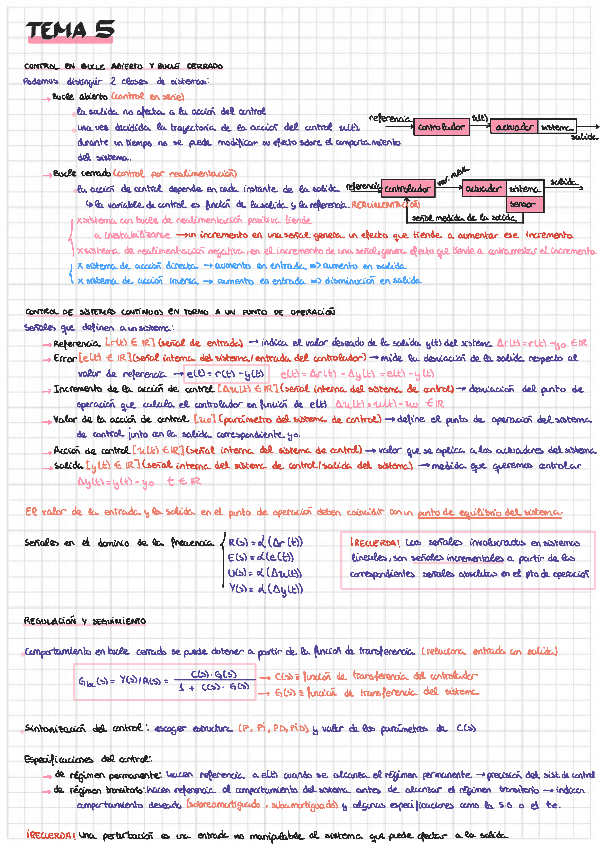 TEMA 5
CONTROL EN BUCLE ABIERTO Y BUCLE CERRADO
Podemos distinguir 2 clases de sistemas:
→ Bucle abierto (control en serie)
• la salida no afecta a la acción del control
• una vez decidida la trayectoria de la acción del control u(t)
durante un tiempo no se puede modificar su efecto sobre el comportamiento
del sistema.
referencia controlador u(t) actuador sistema salida
→ Bucle cerrado (control por realimentación)
• la acción de control depende en cada instante de la salida
↳ la variable de control es función de la salida y la referencia. REALIMENTACIÓN
referencia controlador actuador sistema salida
sensor
señal medida de la salida
x sistema con bucle de realimentación positiva tiende
a inestabilizarse → un incremento en una señal genera un efecto que tiende a aumentar ese incremento
x sistema de realimentación negativa, en el incremento de una señal, genera efecto que tiende a contrarrestar el incremento.
x sistema de acción directa → aumento en entrada => aumento en salida
x sistema de acción inversa → aumento en entrada => disminución en salida
CONTROL DE SISTEMAS CONTINUOS EN TORNO A UN PUNTO DE OPERACIÓN
Señales que definen a un sistema:
→ Referencia [r(t) ∈ IR] (señal de entrada) → indica el valor deseado de la salida y(t) del sistema Δr(t)=r(t)-y₀ ∈ IR
→ Error [e(t) ∈ IR] (señal interna del sistema/entrada del controlador) → mide la desviación de la salida respecto al
valor de referencia → e(t) = r(t) - y(t) e(t) = Δr(t) - Δy(t) = r(t) - y(t)
→ Incremento de la acción de control [Δu(t) ∈ IR] (señal interna del sistema de control) → desviación del punto de
operación que calcula el controlador en función de e(t) Δu(t) = u(t) - u₀ ∈ IR
→ Valor de la acción de control [u₀] (parámetro del sistema de control) → define el punto de operación del sistema
de control junto con la salida correspondiente y₀.
→ Acción de control [u(t) ∈ IR] (señal interna del sistema de control) → valor que se aplica a los actuadores del sistema
→ Salida [y(t) ∈ IR] (señal interna del sistema de control/salida del sistema) → medida que queremos controlar
Δy(t) = y(t) - y₀ t ∈ IR
El valor de la entrada y la salida en el punto de operación deben coincidir con un punto de equilibrio del sistema.
Señales en el dominio de la frecuencia
R(s) = α(Δr(t))
E(s) = α(e(t))
U(s) = α(Δu(t))
Y(s) = α(Δy(t))
¡RECUERDA! Las señales involucradas en sistemas
lineales, son señales incrementales a partir de las
correspondientes señales absolutas en el pto de operación
REGULACIÓN Y SEGUIMIENTO
Comportamiento en bucle cerrado se puede obtener a partir de la función de transferencia (relaciona entrada con salida)
Gbc(s) = Y(s)/R(s) = C(s)·G(s) / 1 + C(s)·G(s)
→ C(s) = función de transferencia del controlador
→ G(s) = función de transferencia del sistema
Sintonización del control: escoger estructura (P, Pi, PD, PiD) y valor de los parámetros de C(s)
Especificaciones del control:
→ de régimen permanente: hacen referencia a e(t) cuando se alcanza el régimen permanente → precisión del sist de control
→ de régimen transitorio: hacen referencia al comportamiento del sistema antes de alcanzar el régimen transitorio → indican
comportamiento deseado (sobreamortiguado, subamortiguado) y algunas especificaciones como la S.O o el te.
¡RECUERDA! Una perturbación es una entrada no manipulable al sistema que puede afectar a la salida